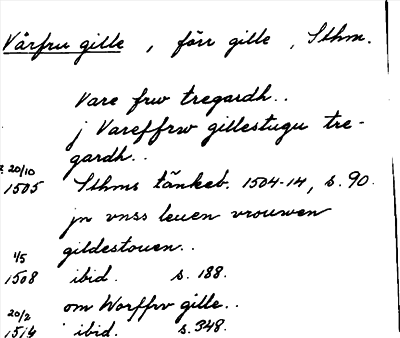 Vårfru gille, förr gille, Sthm.
Vare frw tregardh..
j Vareffrw gillestugu tre-
gardh..
20/10
1505 Sthms tänkeb. 1504-14, s. 90.
jn vnss leuen vrouwen
gildestouen..
4/5
1508 ibid. s. 188.
om Worffrv gille..
20/2
1514 ibid. s. 348.